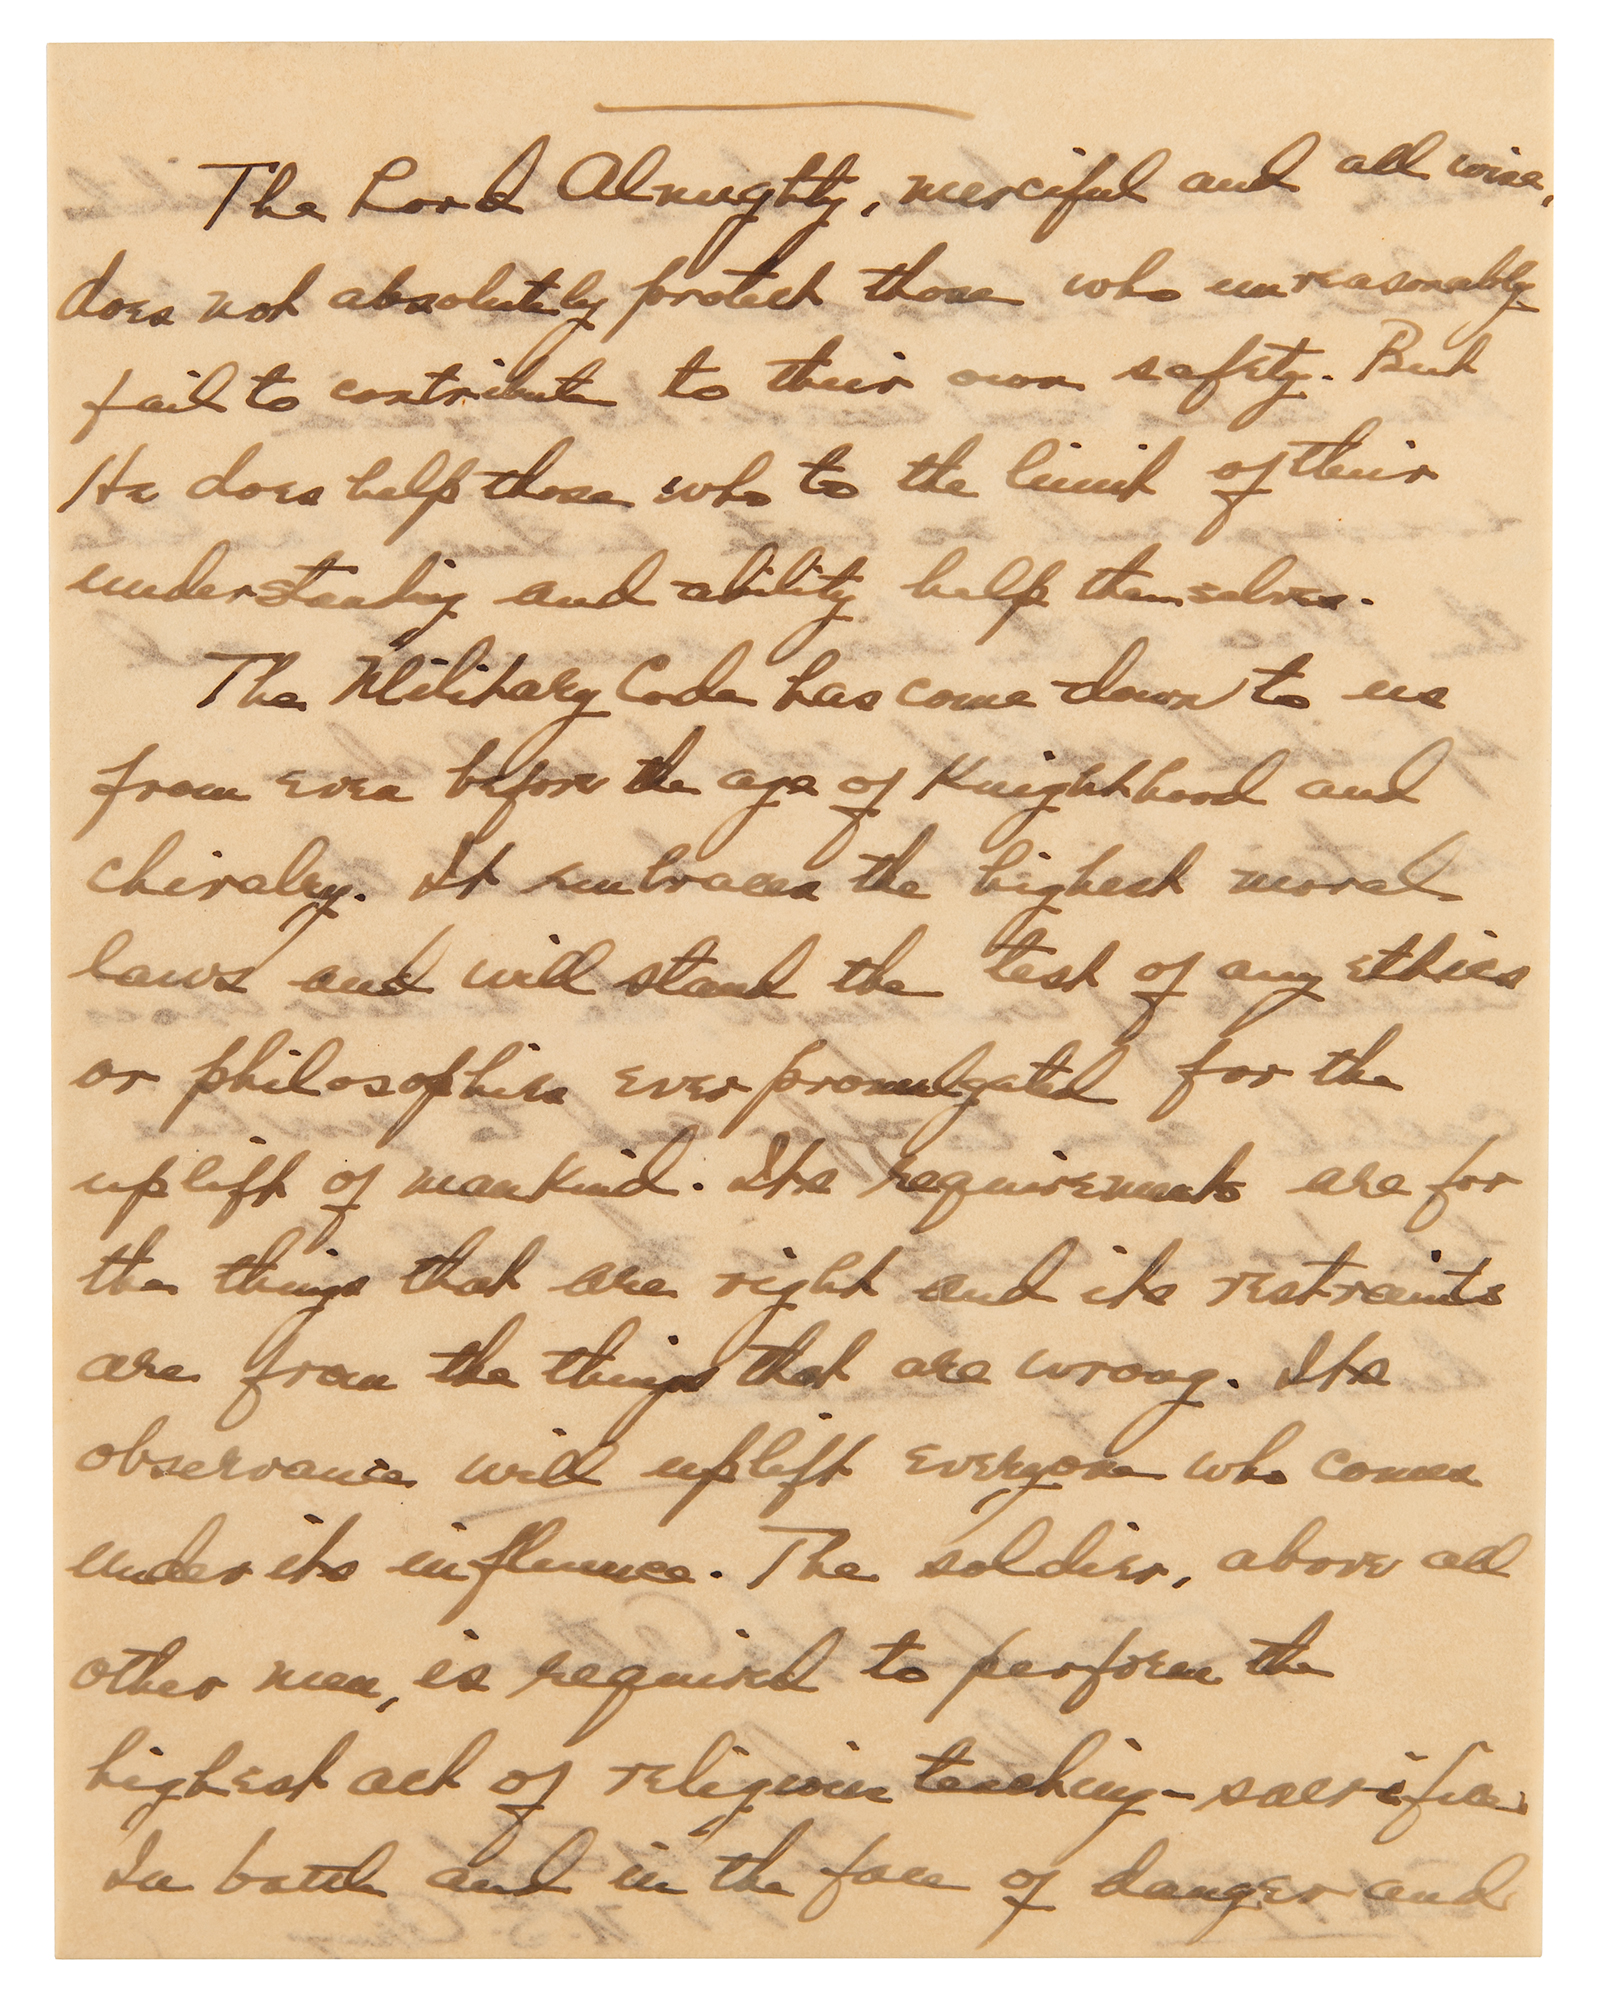 The Lord Almighty, merciful and all wise,
does not absolutely protect those who unreasonably
fail to contribute to their own safety. But
He does help those who to the limit of their
understanding and ability help themselves.
The Military Code has come down to us
from even before the age of Knighthood and
chivalry. It embraces the highest moral
laws and will stand the test of any ethics
or philosophies ever promulgated for the
uplift of mankind. Its requirements are for
the things that are right and its restraints
are from the things that are wrong. Its
observance will uplift everyone who comes
under its influence. The soldier, above all
other men, is required to perform the
highest act of religious teaching - sacrifice.
In battle and in the face of danger and